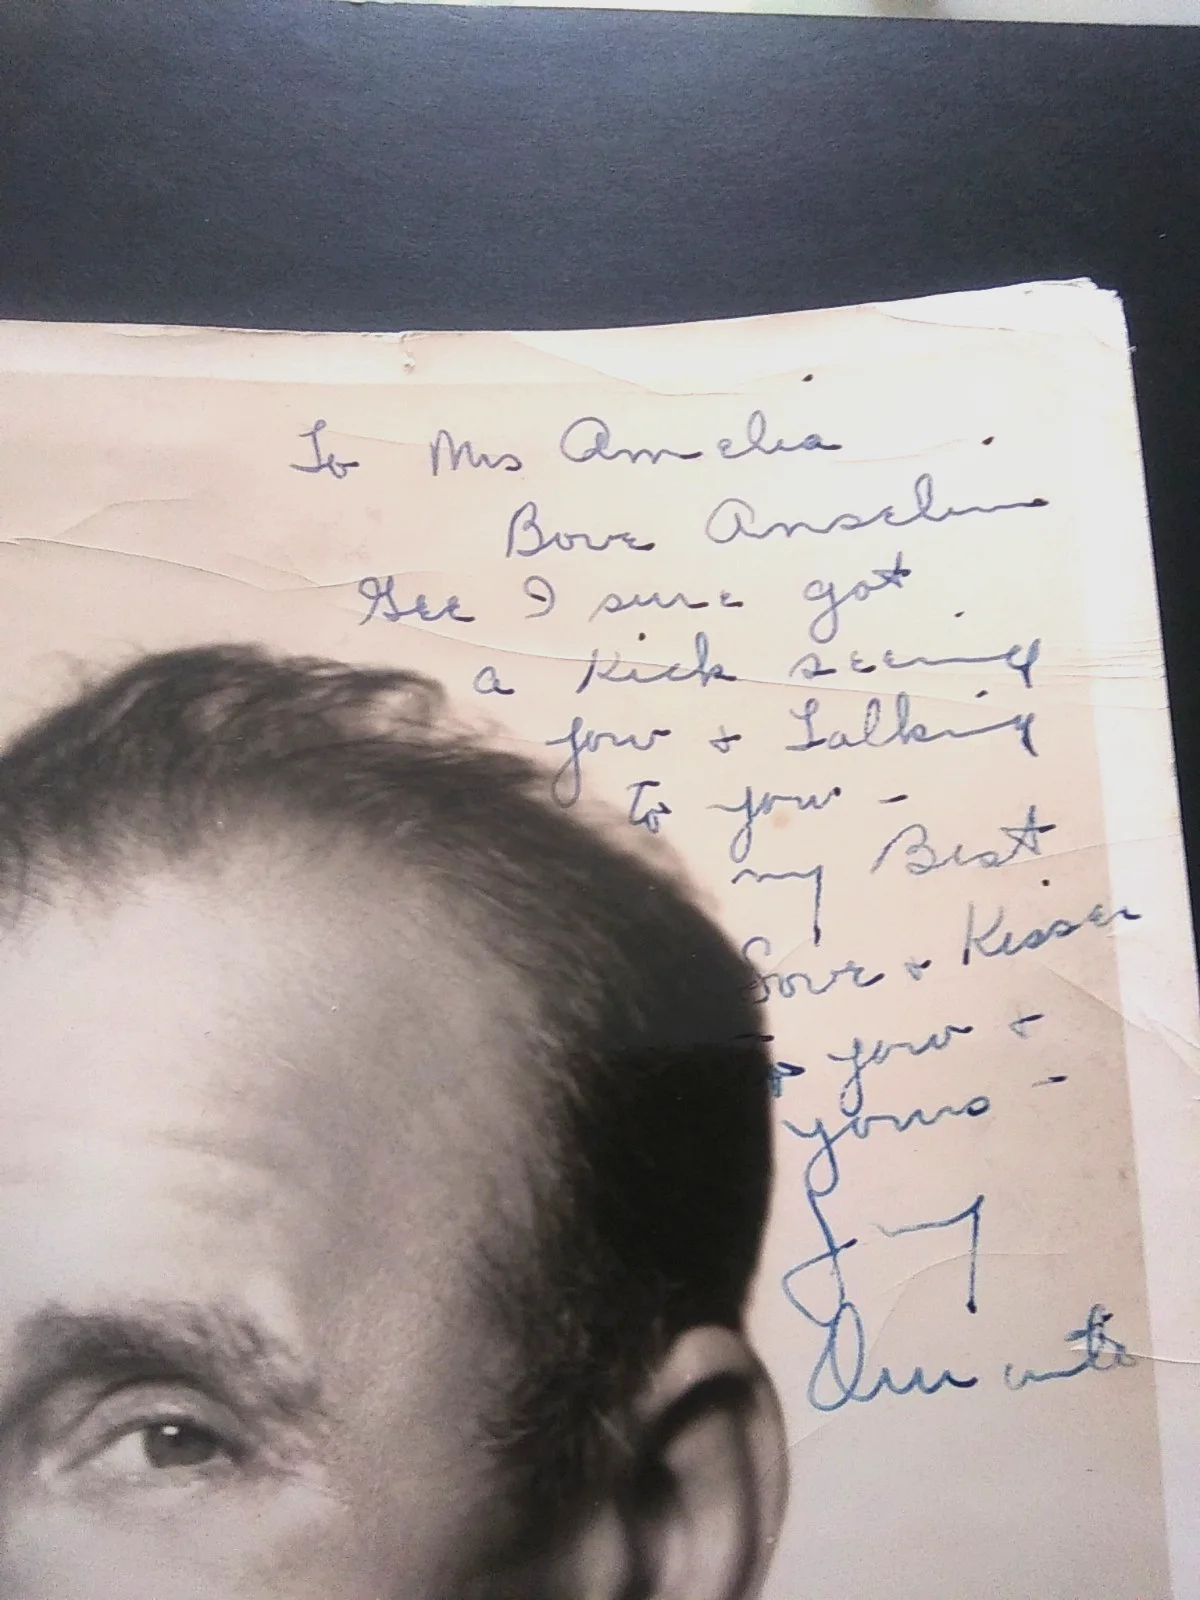 To Mrs Amelia
Bove Anselmi
Gee I sure got
a Kick seeing
you & Talking
to you -
my Best
Love & Kisses
to you &
yours -
Jimmy
Durante